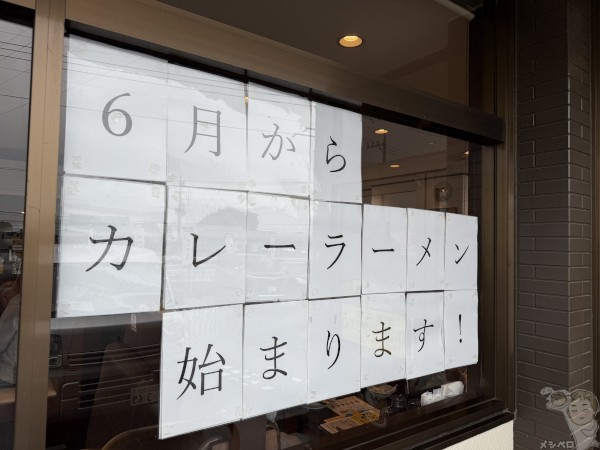 6月から
カレーラーメン
始まります!
メシペロ